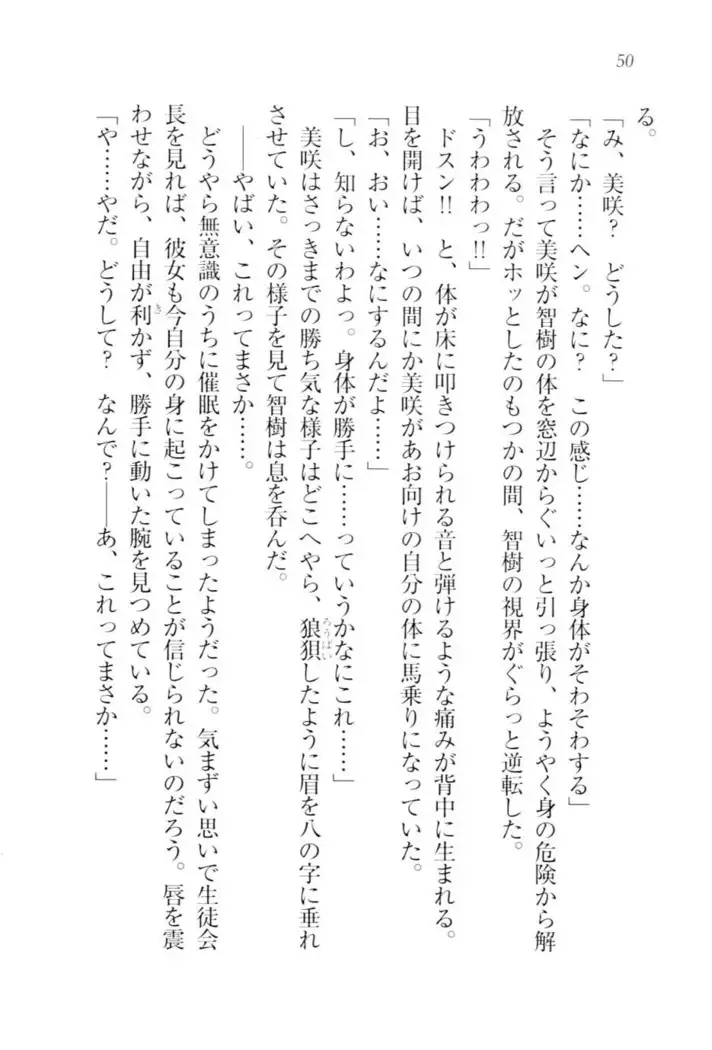 50
る。
「み、美咲？　どうした？」
「なにか……ヘン。なに？　この感じ……なんか身体がそわそわする」
そう言って美咲が智樹の体を窓辺からぐいっと引っ張り、ようやく身の危険から解
放される。だがホッとしたのもつかの間、智樹の視界がぐらっと逆転した。
「うわわわっ!!」
ドスン!!　と、体が床に叩きつけられる音と弾けるような痛みが背中に生まれる。
目を開けば、いつの間にか美咲があお向けの自分の体に馬乗りになっていた。
「お、おい……なにするんだよ……」
「し、知らないわよっ。身体が勝手に……っていうかなにこれ……」
美咲はさっきまでの勝ち気な様子はどこへやら、狼狽したように眉を八の字に垂れ
させていた。その様子を見て智樹は息を呑んだ。
――やばい、これってまさか……。
どうやら無意識のうちに催眠をかけてしまったようだった。気まずい思いで生徒会
長を見れば、彼女も今自分の身に起こっていることが信じられないのだろう。唇を震
わせながら、自由が利かず、勝手に動いた腕を見つめている。
「や……やだ。どうして？　なんで？――あ、これってまさか……」